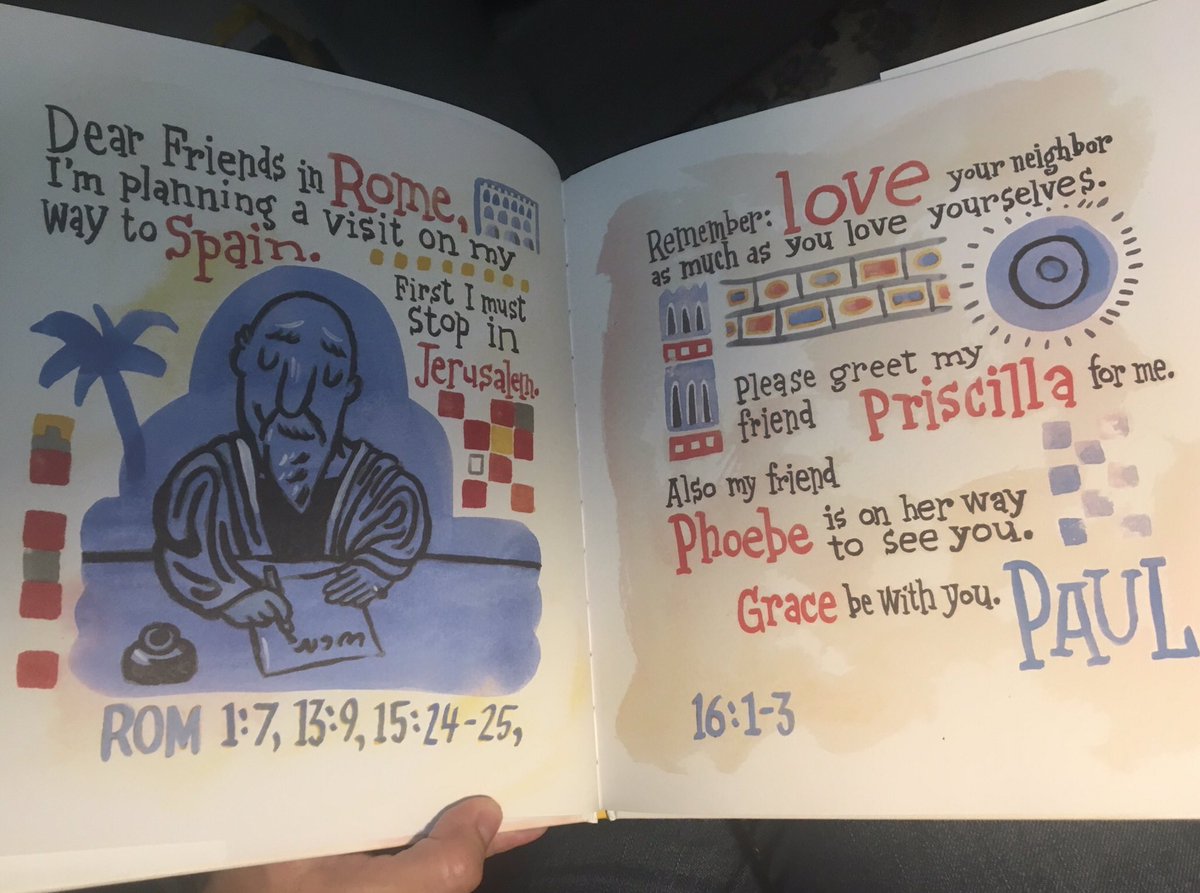 Dear Friends in Rome,
I'm planning a visit on my
way to Spain.
First I must
stop in
Jerusalem.
ROM 1:7, 13:9, 15:24-25,
Remember: love your neighbor
as much as you love yourselves.
Please greet my
friend Priscilla for me.
Also my friend
Phoebe is on her way
to see you.
Grace be with you. PAUL
16:1-3